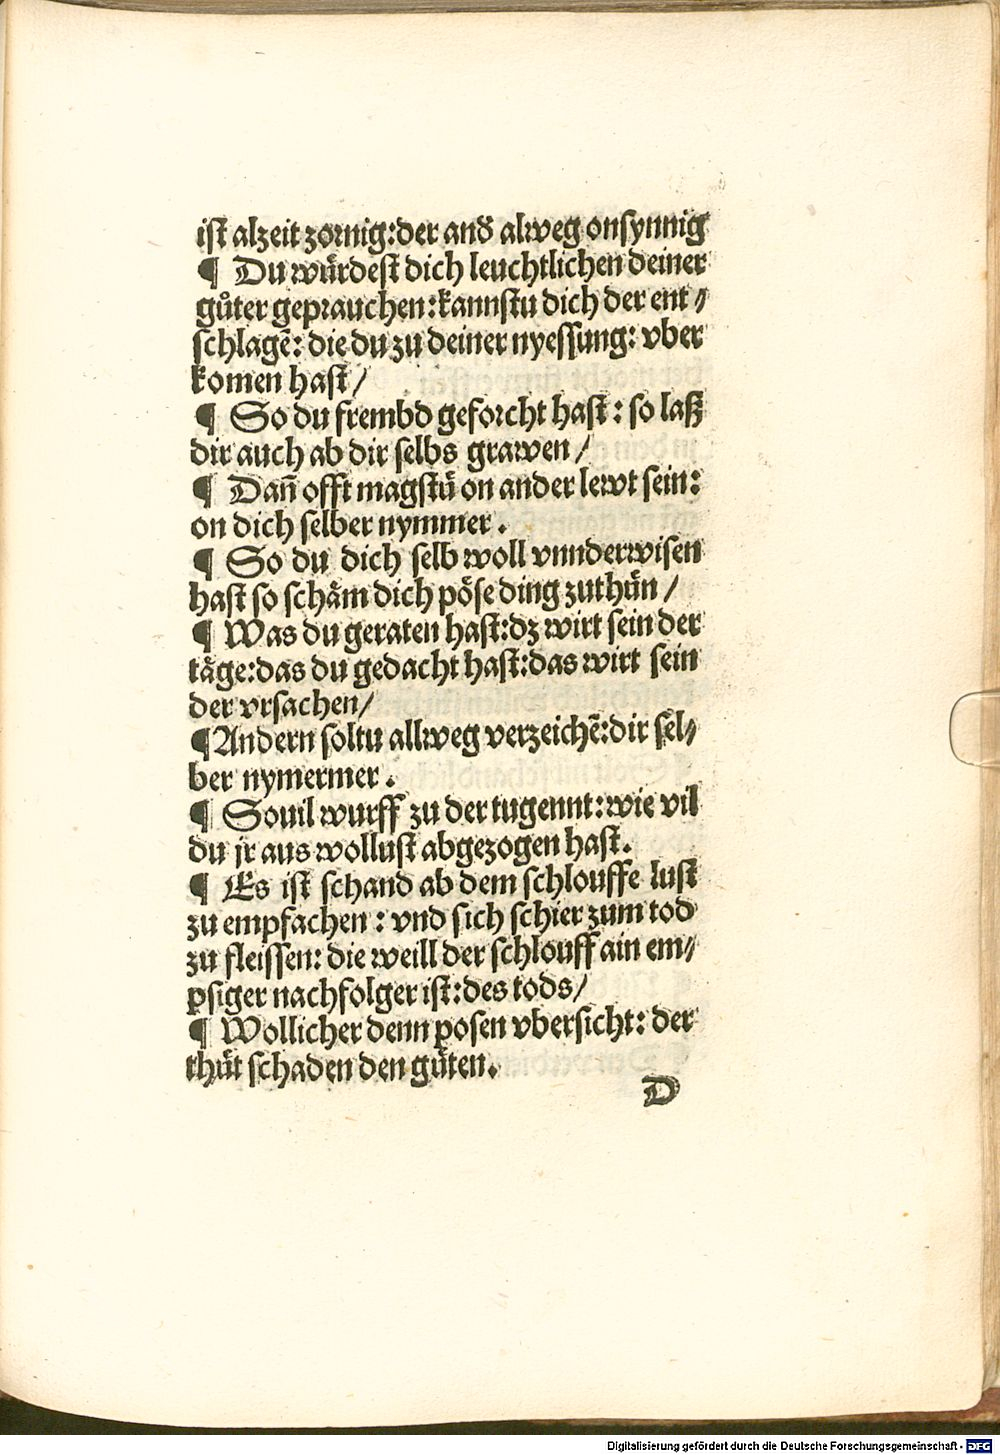 ist alzeit zornig:der and̾ alweg onsynnig
¶ Du wuͤrdest dich leuchtlichen deiner
guͦter geprauchen:kannstu dich der ent⸗
schlagē: die du zu deiner nyessung: vber
komen hast/
¶ So du frembd geforcht hast: so laß
dir auch ab dir selbs grawen/
¶ Dañ offt magstuͤ on ander lewt sein:
on dich selber nymmer.
¶ So du dich selb woll vnnderwisen
hast so schaͤm dich poͤse ding zuthuͤn/
¶ Was du geraten hast:dz wirt sein der
taͤge:das du gedacht hast:das wirt sein
der vrsachen/
¶ Andern soltu allweg verzeichē:dir sel⸗
ber nymermer.
¶ Souil wurff zu der tugennt:wie vil
du jr aus wollust abgezogen hast.
¶ Es ist schand ab dem schlouffe lust
zu empfachen: vnd sich schier zum tod
zu fleissen: die weill der schlouff ain em⸗
psiger nachfolger ist:des tods/
¶ Wollicher denn posen vbersicht: der
thuͤt schaden den guͤten.
D
Digitalisierung gefördert durch die Deutsche Forschungsgemeinschaft - DFG